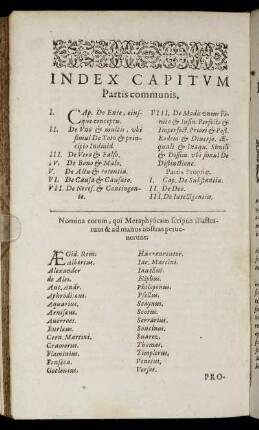 INDEX CAPITVM
Partis communis.
I. CAp. De Ente, eius-
que conceptu.
II. De Vno & multis, vbi
simul De Toto & prin-
cipio Indiuid.
III. De Vero & Falso.
IV. De Bono & Malo.
V. De Actu & potentia.
VI. De Causa & Causato.
VII. De Necess. & Contingen-
te.
VIII. De Modis entium Fi-
nito & Infin. Perfecto &
Imperfect. Priori & Post.
Eodem & Diuerso, Æ-
quali & Inæqu. Simili
& Dissim. vbi simul De
Distinctione.
Partis Propriæ.
I. Cap. De Substantia.
II. De Deo.
III. De Intelligentiis.
Nomina eorum, qui Metaphysicam scriptis illustra-
runt & ad manus nostras perue-
nerunt.
ÆGid. Rom.
Albertus.
Alexander
de Ales.
Ant. Andr.
Aphrodisæus.
Aquarius.
Arnisæus.
Auerroes.
Corn. Martini.
Cramerus.
Flaminius.
Fonseca.
Goclenius.
Iac. Martini.
Iauellus.
Niphus.
Philoponus.
Scotus.
Serrarius.
Soncinas.
Suarez.
Thomas.
Timplerus.
Venetus.
Versor.
PRO-